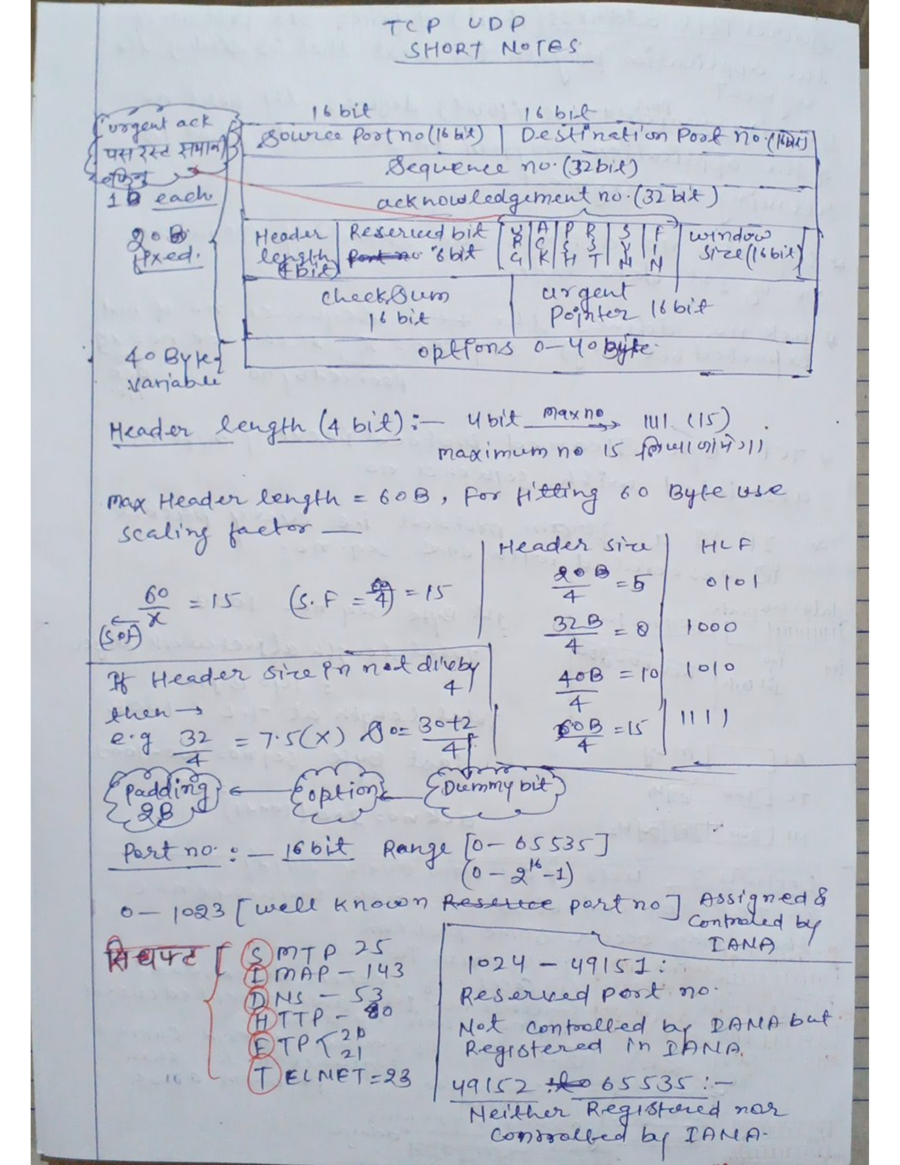 TCP UDP
SHORT NOTES
16 bit 16 bit
urgent ack
पस रस्ट समान
1B each
20B
fixed.
40 Byte
variable
Source Port no (16 bit) Destination Port no. (16bit)
Sequence no. (32bit)
acknowledgement no. (32 bit)
Header length (4bit) Reserved bit 6 bit URG ACK PSH RST SYN FIN window size (16 bit)
CheckSum 16 bit urgent Pointer 16 bit
options 0-40 Byte.
Header length (4 bit) :- 4 bit Max no → 1111 (15)
maximum no 15
Max Header length = 60B, For fitting 60 Byte use
scaling factor —
Header size HLF
20B/4 = 5 0101
32B/4 = 8 1000
40B/4 = 10 1010
60B/4 = 15 1111
60/x = 15 (S.F = 60/4) = 15
(S.F)
If Header size in not dive by
4
then →
e.g 32/4 = 7.5 (x) So = 30+2/4
Padding 2B ← option ← Dummy bit
Port no. :- 16 bit Range [0-65535]
(0-2^16-1)
0-1023 [well known Reserve port no] Assigned &
Controled by
IANA
SMTP 25
IMAP - 143
DNS - 53
HTTP - 80
FTP 20
21
TELNET = 23
1024 - 49151 :
Reserved port no.
Not controlled by IANA but
Registered in IANA.
49152 to 65535 :-
Neither Registered nor
controlled by IANA.